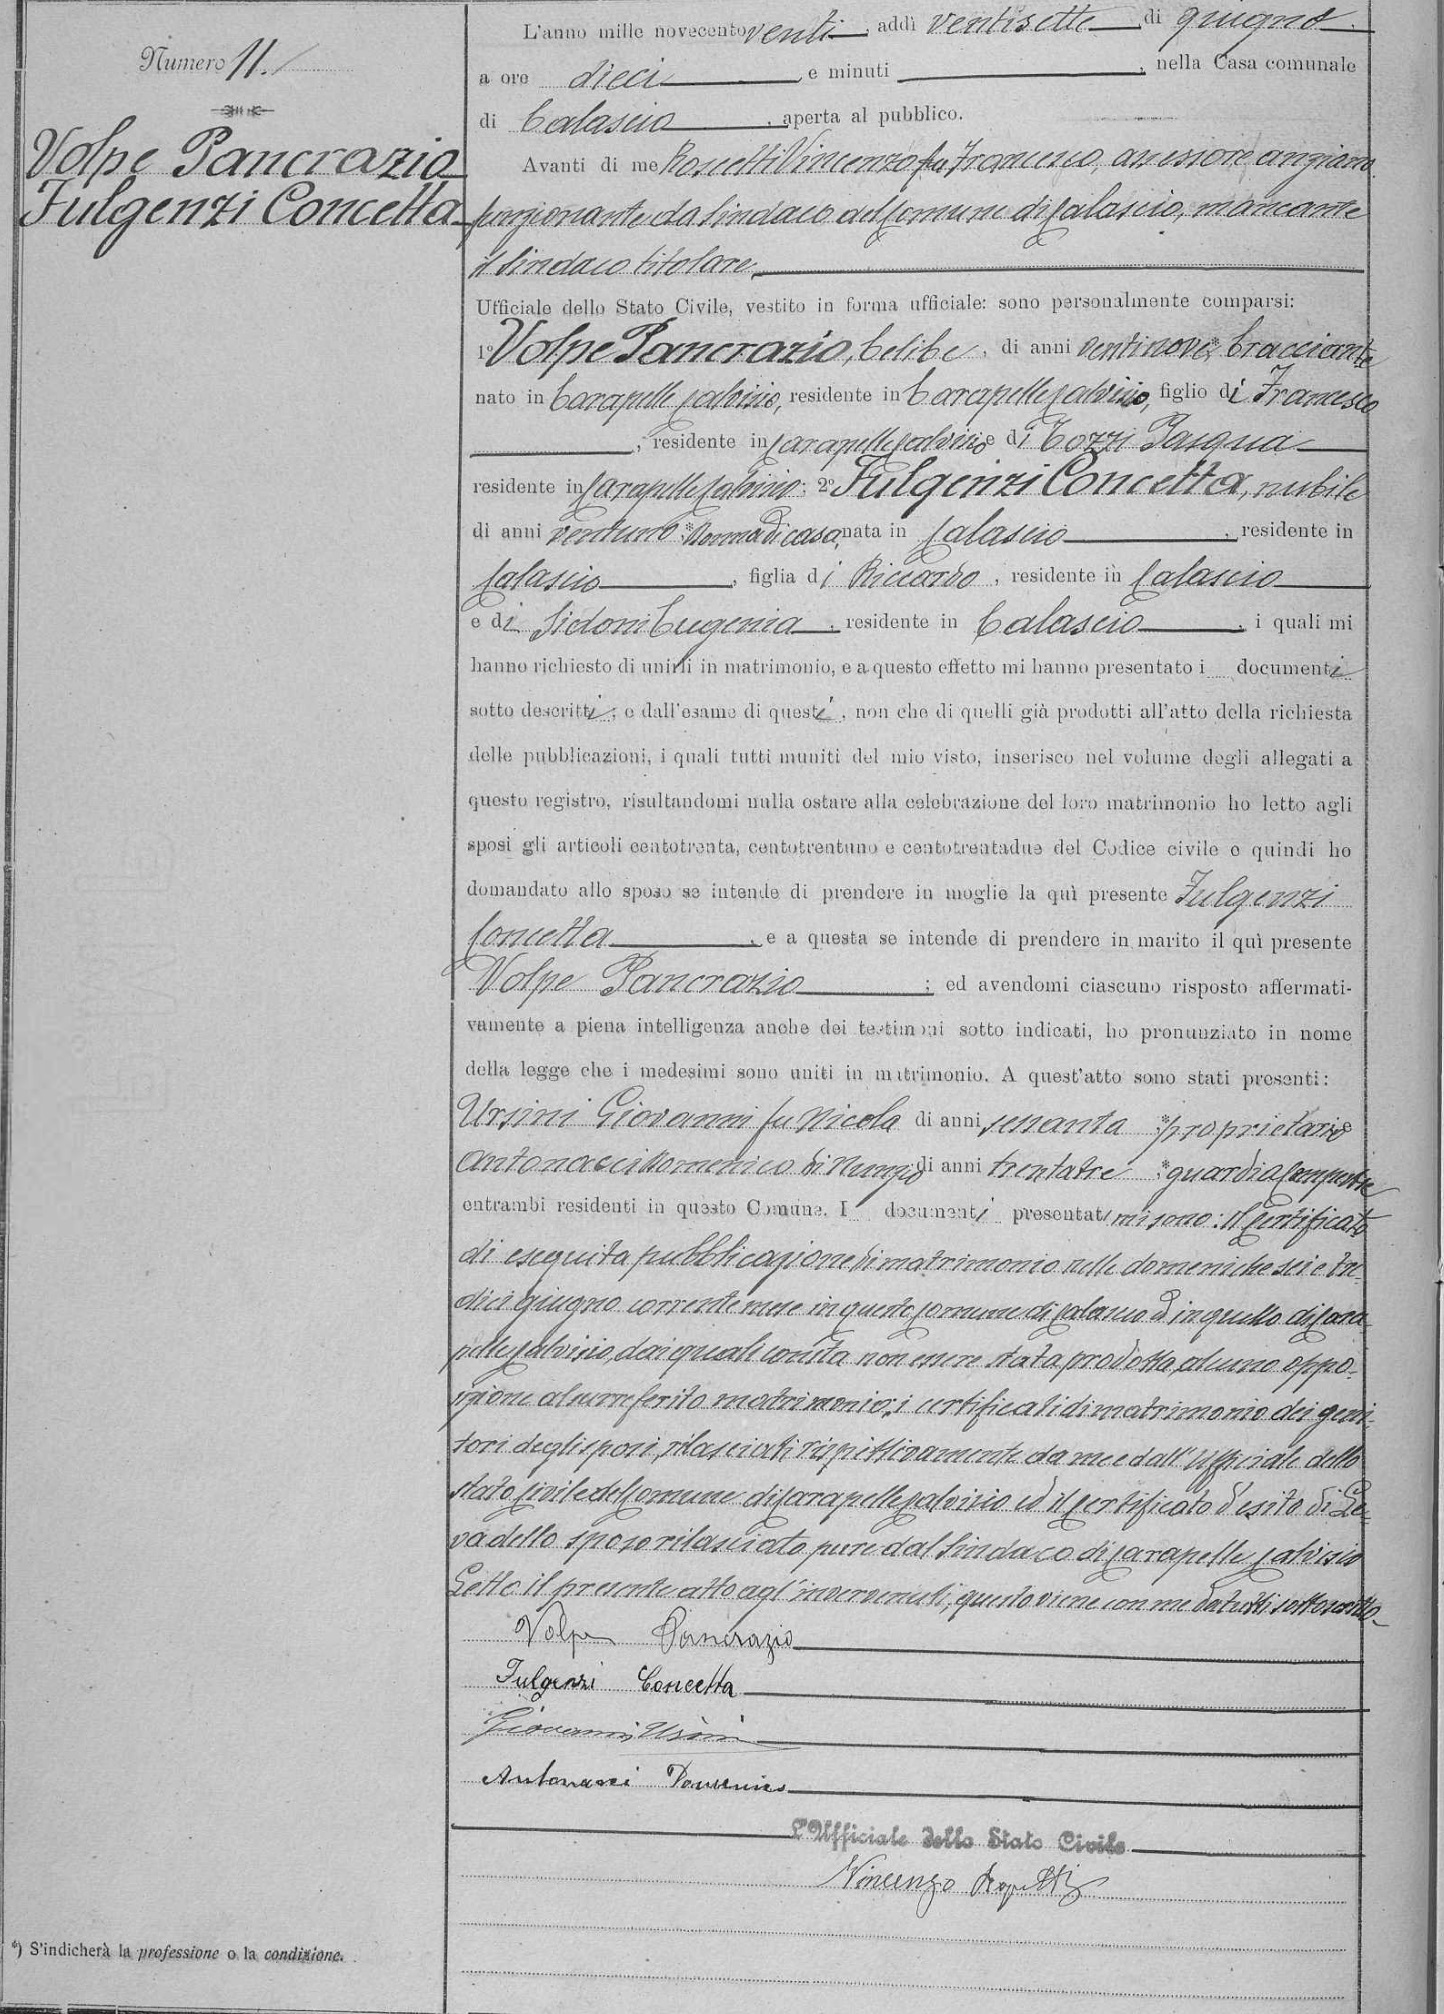 Numero 11.
Volpe Pancrazio
Fulgenzi Concetta
L'anno mille novecento venti, addì ventisette di giugno
a ore dieci e minuti , nella Casa comunale
di Calascio, aperta al pubblico.
Avanti di me Roscetti Vincenzo fu Francesco, assessore anziano
funzionante da Sindaco del Comune di Calascio, mancante
il Sindaco titolare,
Ufficiale dello Stato Civile, vestito in forma ufficiale: sono personalmente comparsi:
1º Volpe Pancrazio, celibe, di anni ventinove, * bracciante
nato in Carapelle Calvisio, residente in Carapelle Calvisio, figlio di Francesco
, residente in Carapelle Calvisio e di Cozzi Pasqua
residente in Carapelle Calvisio; 2º Fulgenzi Concetta, nubile
di anni ventuno * donna di casa, nata in Calascio, residente in
Calascio, figlia di Riccardo, residente in Calascio
e di Sidoni Eugenia, residente in Calascio, i quali mi
hanno richiesto di unirli in matrimonio, e a questo effetto mi hanno presentato i documenti
sotto descritti; e dall'esame di questi, non che di quelli già prodotti all'atto della richiesta
delle pubblicazioni, i quali tutti muniti del mio visto, inserisco nel volume degli allegati a
questo registro, risultandomi nulla ostare alla celebrazione del loro matrimonio ho letto agli
sposi gli articoli centotrenta, centotrentuno e centotrentadue del Codice civile e quindi ho
domandato allo sposo se intende di prendere in moglie la quì presente Fulgenzi
Concetta, e a questa se intende di prendere in marito il quì presente
Volpe Pancrazio; ed avendomi ciascuno risposto affermati-
vamente a piena intelligenza anche dei testimoni sotto indicati, ho pronunziato in nome
della legge che i medesimi sono uniti in matrimonio. A quest'atto sono stati presenti:
Ursini Giovanni fu Nicola di anni sessanta * proprietario e
Antonacci Domenico di Nunzio di anni trentatre * guardia Campestre
entrambi residenti in questo Comune. I documenti presentatimi sono: Il Certificato
di eseguita pubblicazione di matrimonio nelle domeniche sei e tre-
dici giugno corrente mese in questo Comune di Calascio e in quello di Cara
pelle Calvisio, dai quali consta non essere stata prodotta alcuna oppo-
sizione al surreferito matrimonio; i certificati di matrimonio dei geni-
tori degli sposi, rilasciati rispettivamente da me e dall'Ufficiale dello
Stato Civile del Comune di Carapelle Calvisio ed il Certificato d'esito di Le-
va dello sposo rilasciato pure dal Sindaco di Carapelle Calvisio
Letto il presente atto agl'intervenuti, questo viene con me da tutti sottoscritto-
Volpe Pancrazio
Fulgenzi Concetta
Giovanni Ursini
Antonacci Domenico
L'Ufficiale dello Stato Civile
Vincenzo Roscetti
*) S'indicherà la professione o la condizione.